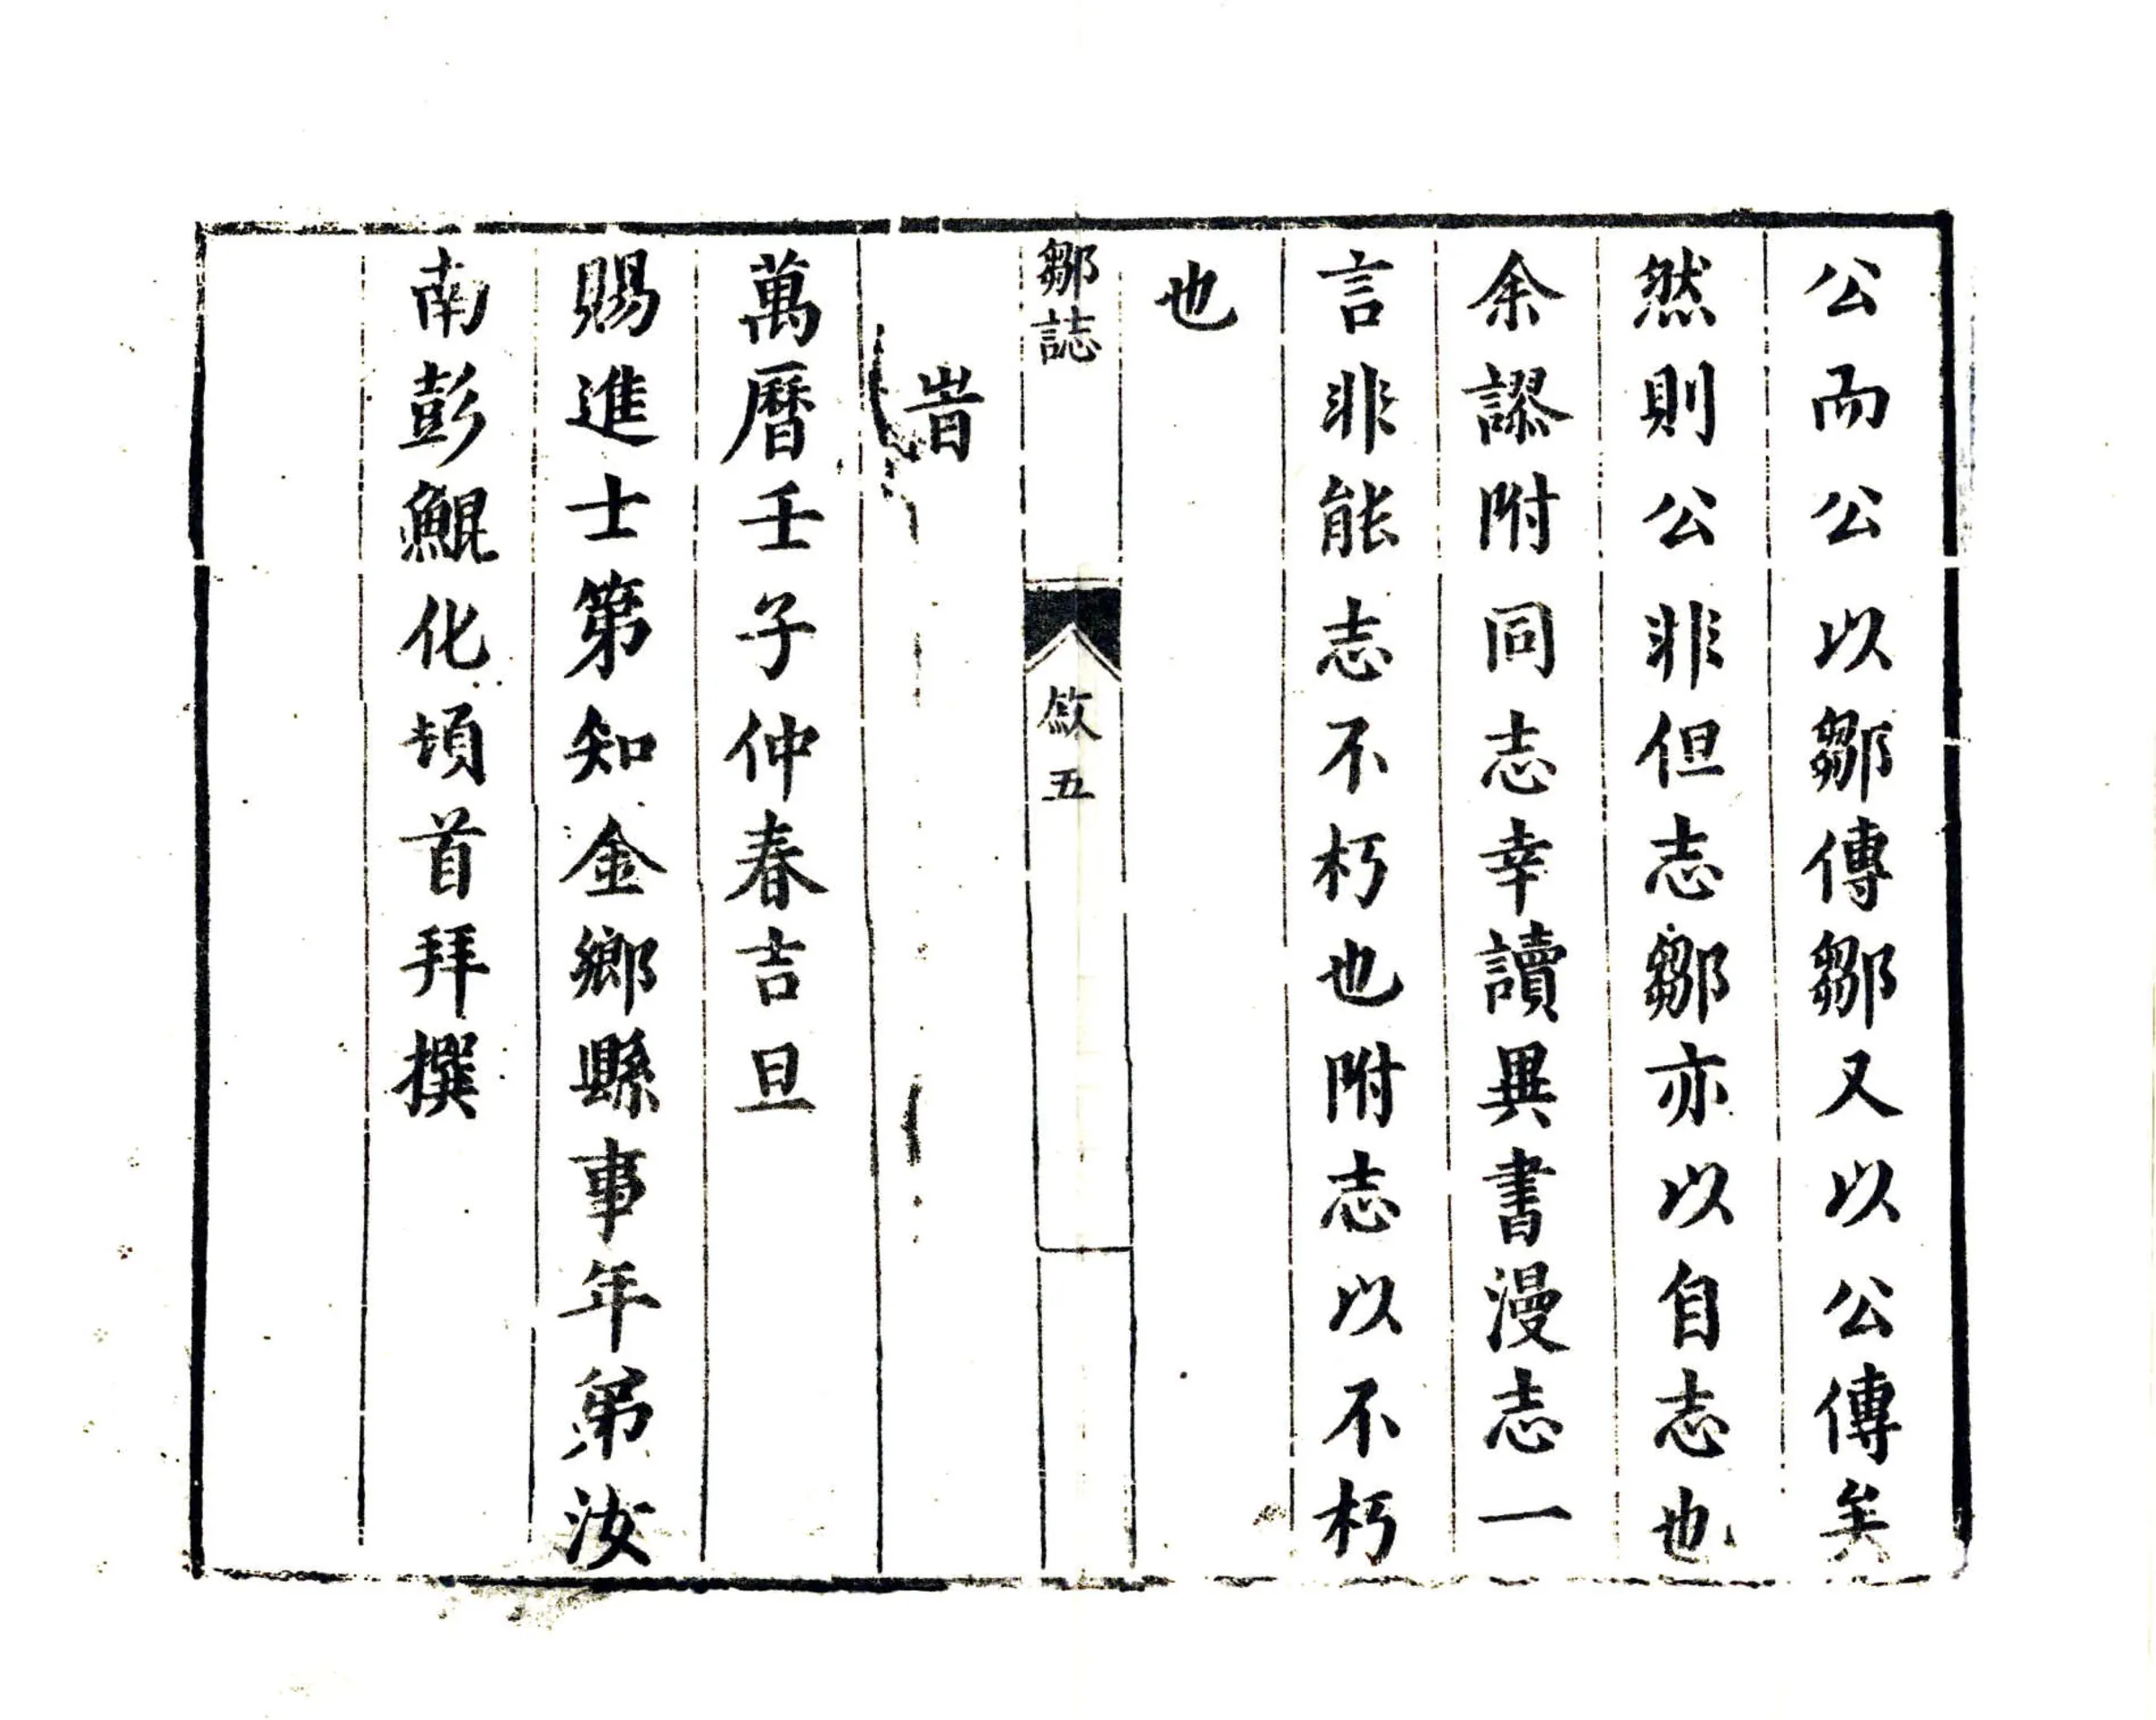 公而公以鄒傳鄒又以公傳矣
然則公非但志鄒亦以自志也
余謬附同志幸讀異書漫志一
言非能志不朽也附志以不朽
也
鄒誌
敘五
旹
萬曆壬子仲春吉旦
賜進士第知金鄉縣事年弟汝
南彭鯤化頓首拜撰